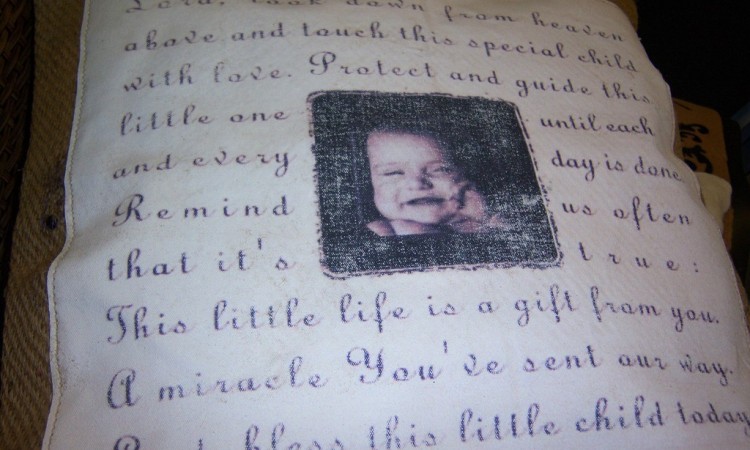 Lord, look down from heaven
above and touch this special child
with love. Protect and guide this
little one until each
and every day is done.
Remind us often
that it's true:
This little life is a gift from you.
A miracle You've sent our way.
bless this little child today